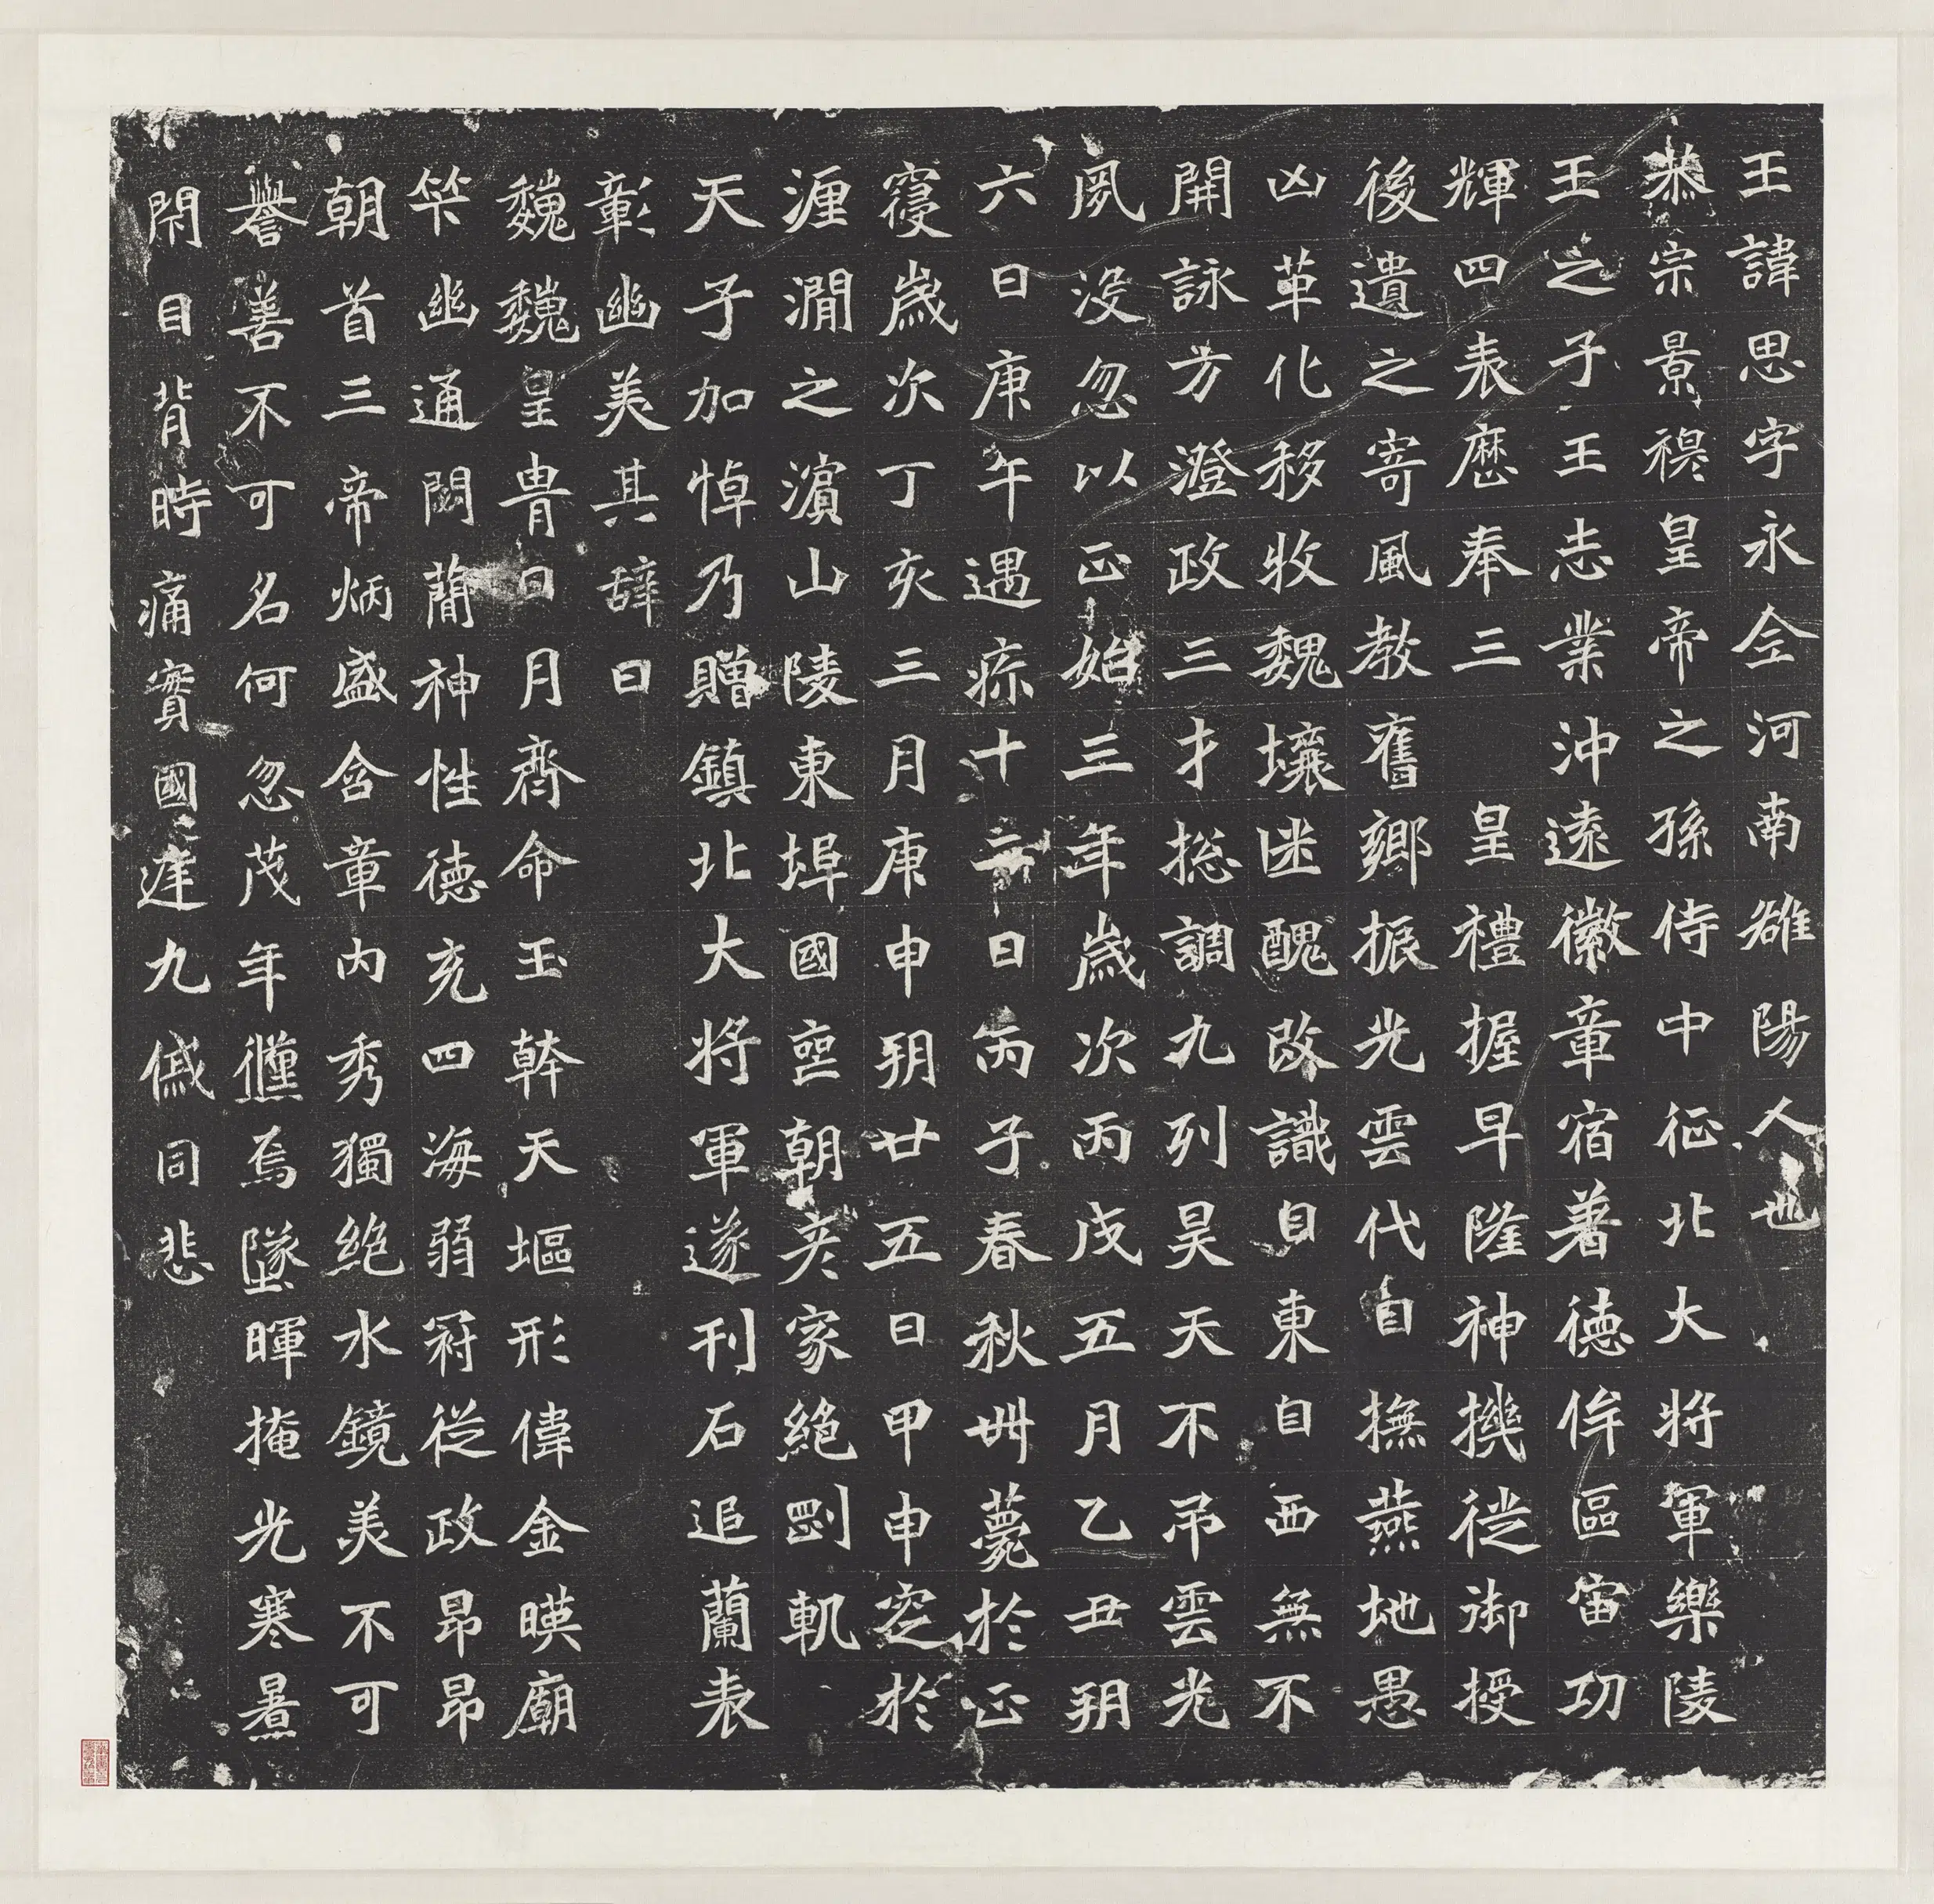 王諱思字永全河南雒陽人也
恭宗景穆皇帝之孫侍中征北大將軍樂陵
王之子王志業沖遠徽章宿著德侔區宙功
輝四表歷奉三皇禮握早隆神機徙御授
後遺之寄風教舊鄉振光雲代自撫燕地愚
凶革化移牧魏壤迷醜改識自東自西無不
開詠方澄政三才揔調九列昊天不吊雲光
夙没忽以正始三年歲次丙戌五月乙丑玥
六日庚午遇痳十二日丙子春秋卌薨於正
寑歲次丁亥三月庚申玥廿五日甲申窆於
湹澗之濵山陵東埠國喪朝彦家絶劉軌
天子加悼乃贈鎮北大將軍遂刊石追蘭表
彰幽美其辞曰
巍巍皇胄日月齊命玉幹天塸形偉金暎廟
竿幽通閎蘭神性德充四海弱冠從政昂昂
朝首三帝炳盛含章内秀獨絶水鏡美不可
譽善不可名何忽茂年殲焉墜暉掩光寒暑
閇目背時痛實國違九慼同悲